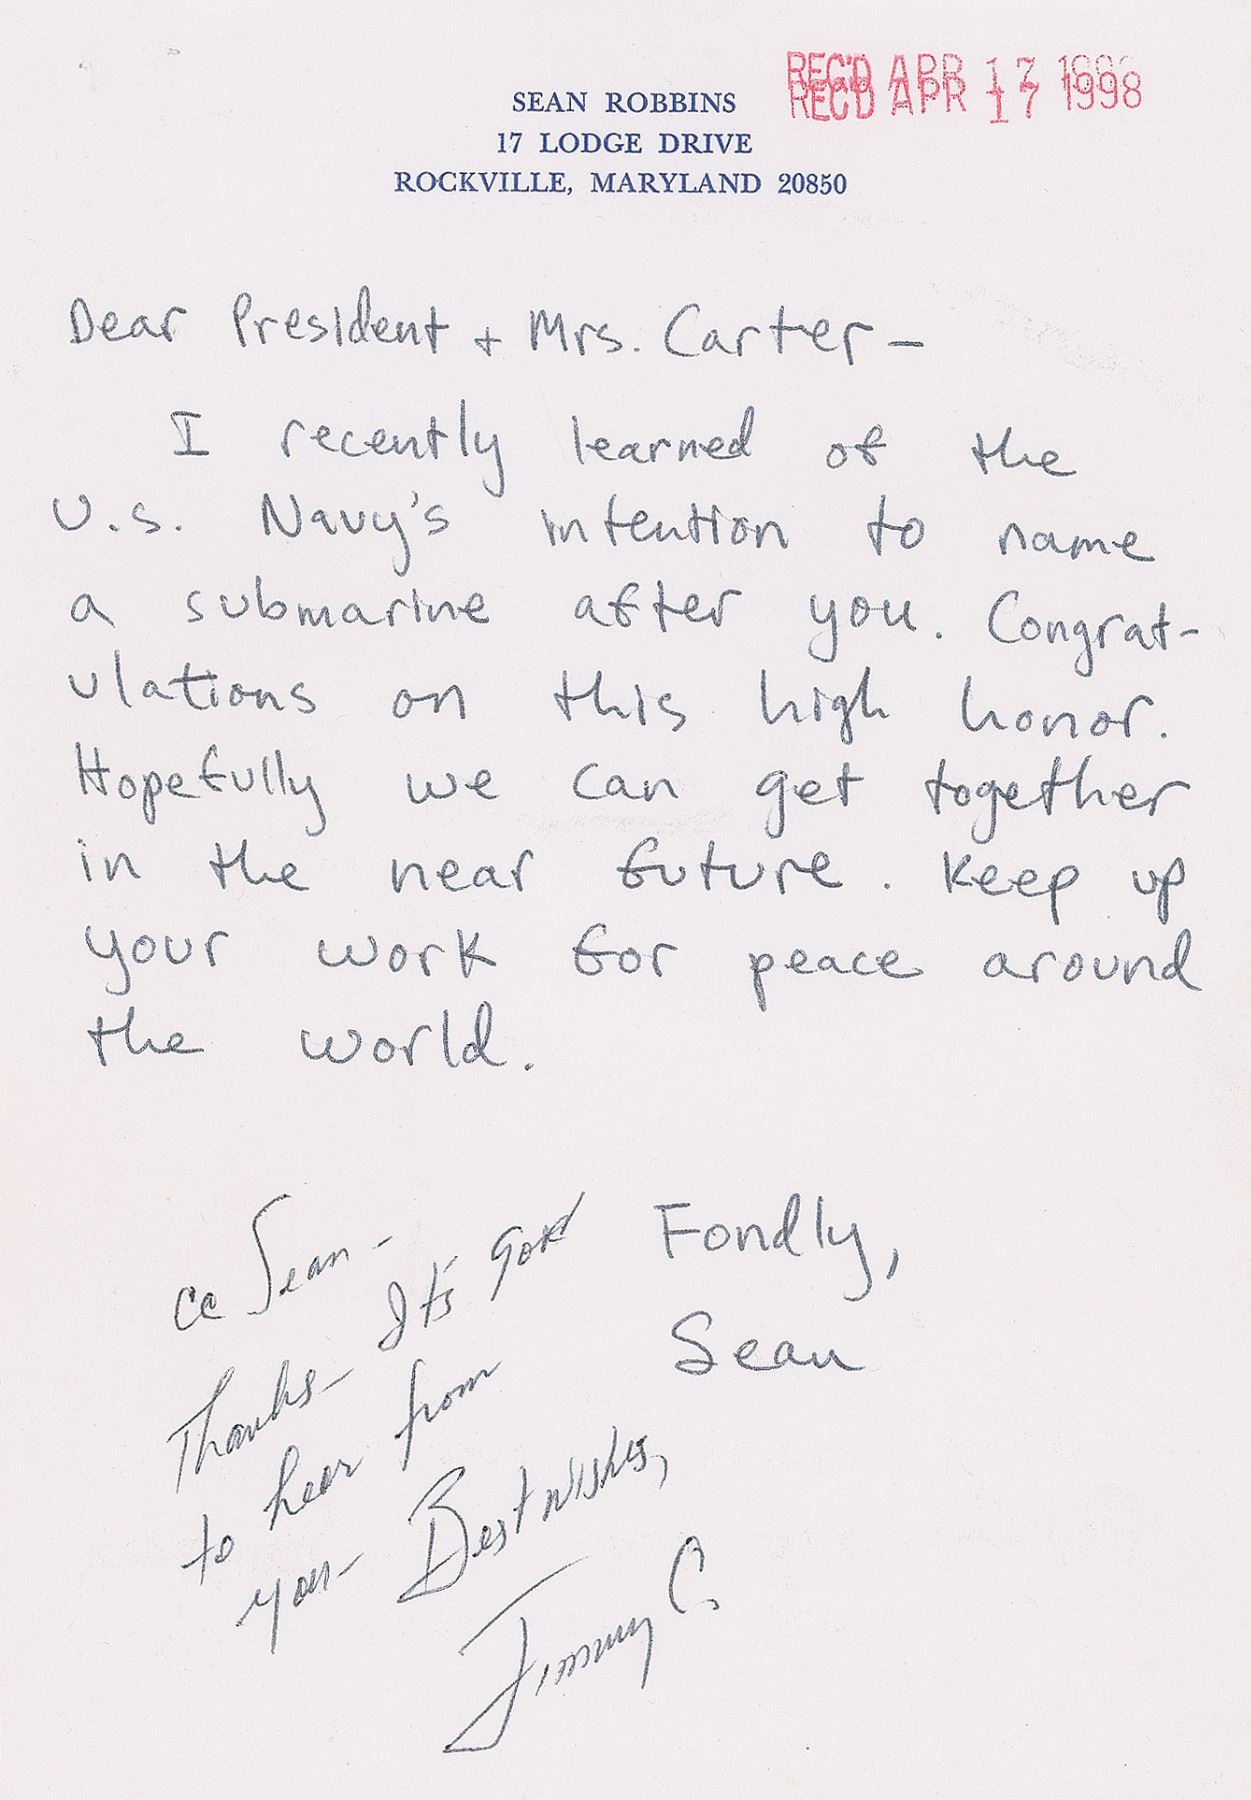 REC'D APR 17 1998
REC'D APR 17 1998
SEAN ROBBINS
17 LODGE DRIVE
ROCKVILLE, MARYLAND 20850
Dear President + Mrs. Carter—
I recently learned of the
U.S. Navy's intention to name
a submarine after you. Congrat-
ulations on this high honor.
Hopefully we can get together
in the near future. Keep up
your work for peace around
the world.
Fondly,
Sean
cc Sean-
Thanks- It's good
to hear from
you- Best wishes,
Jimmy C.